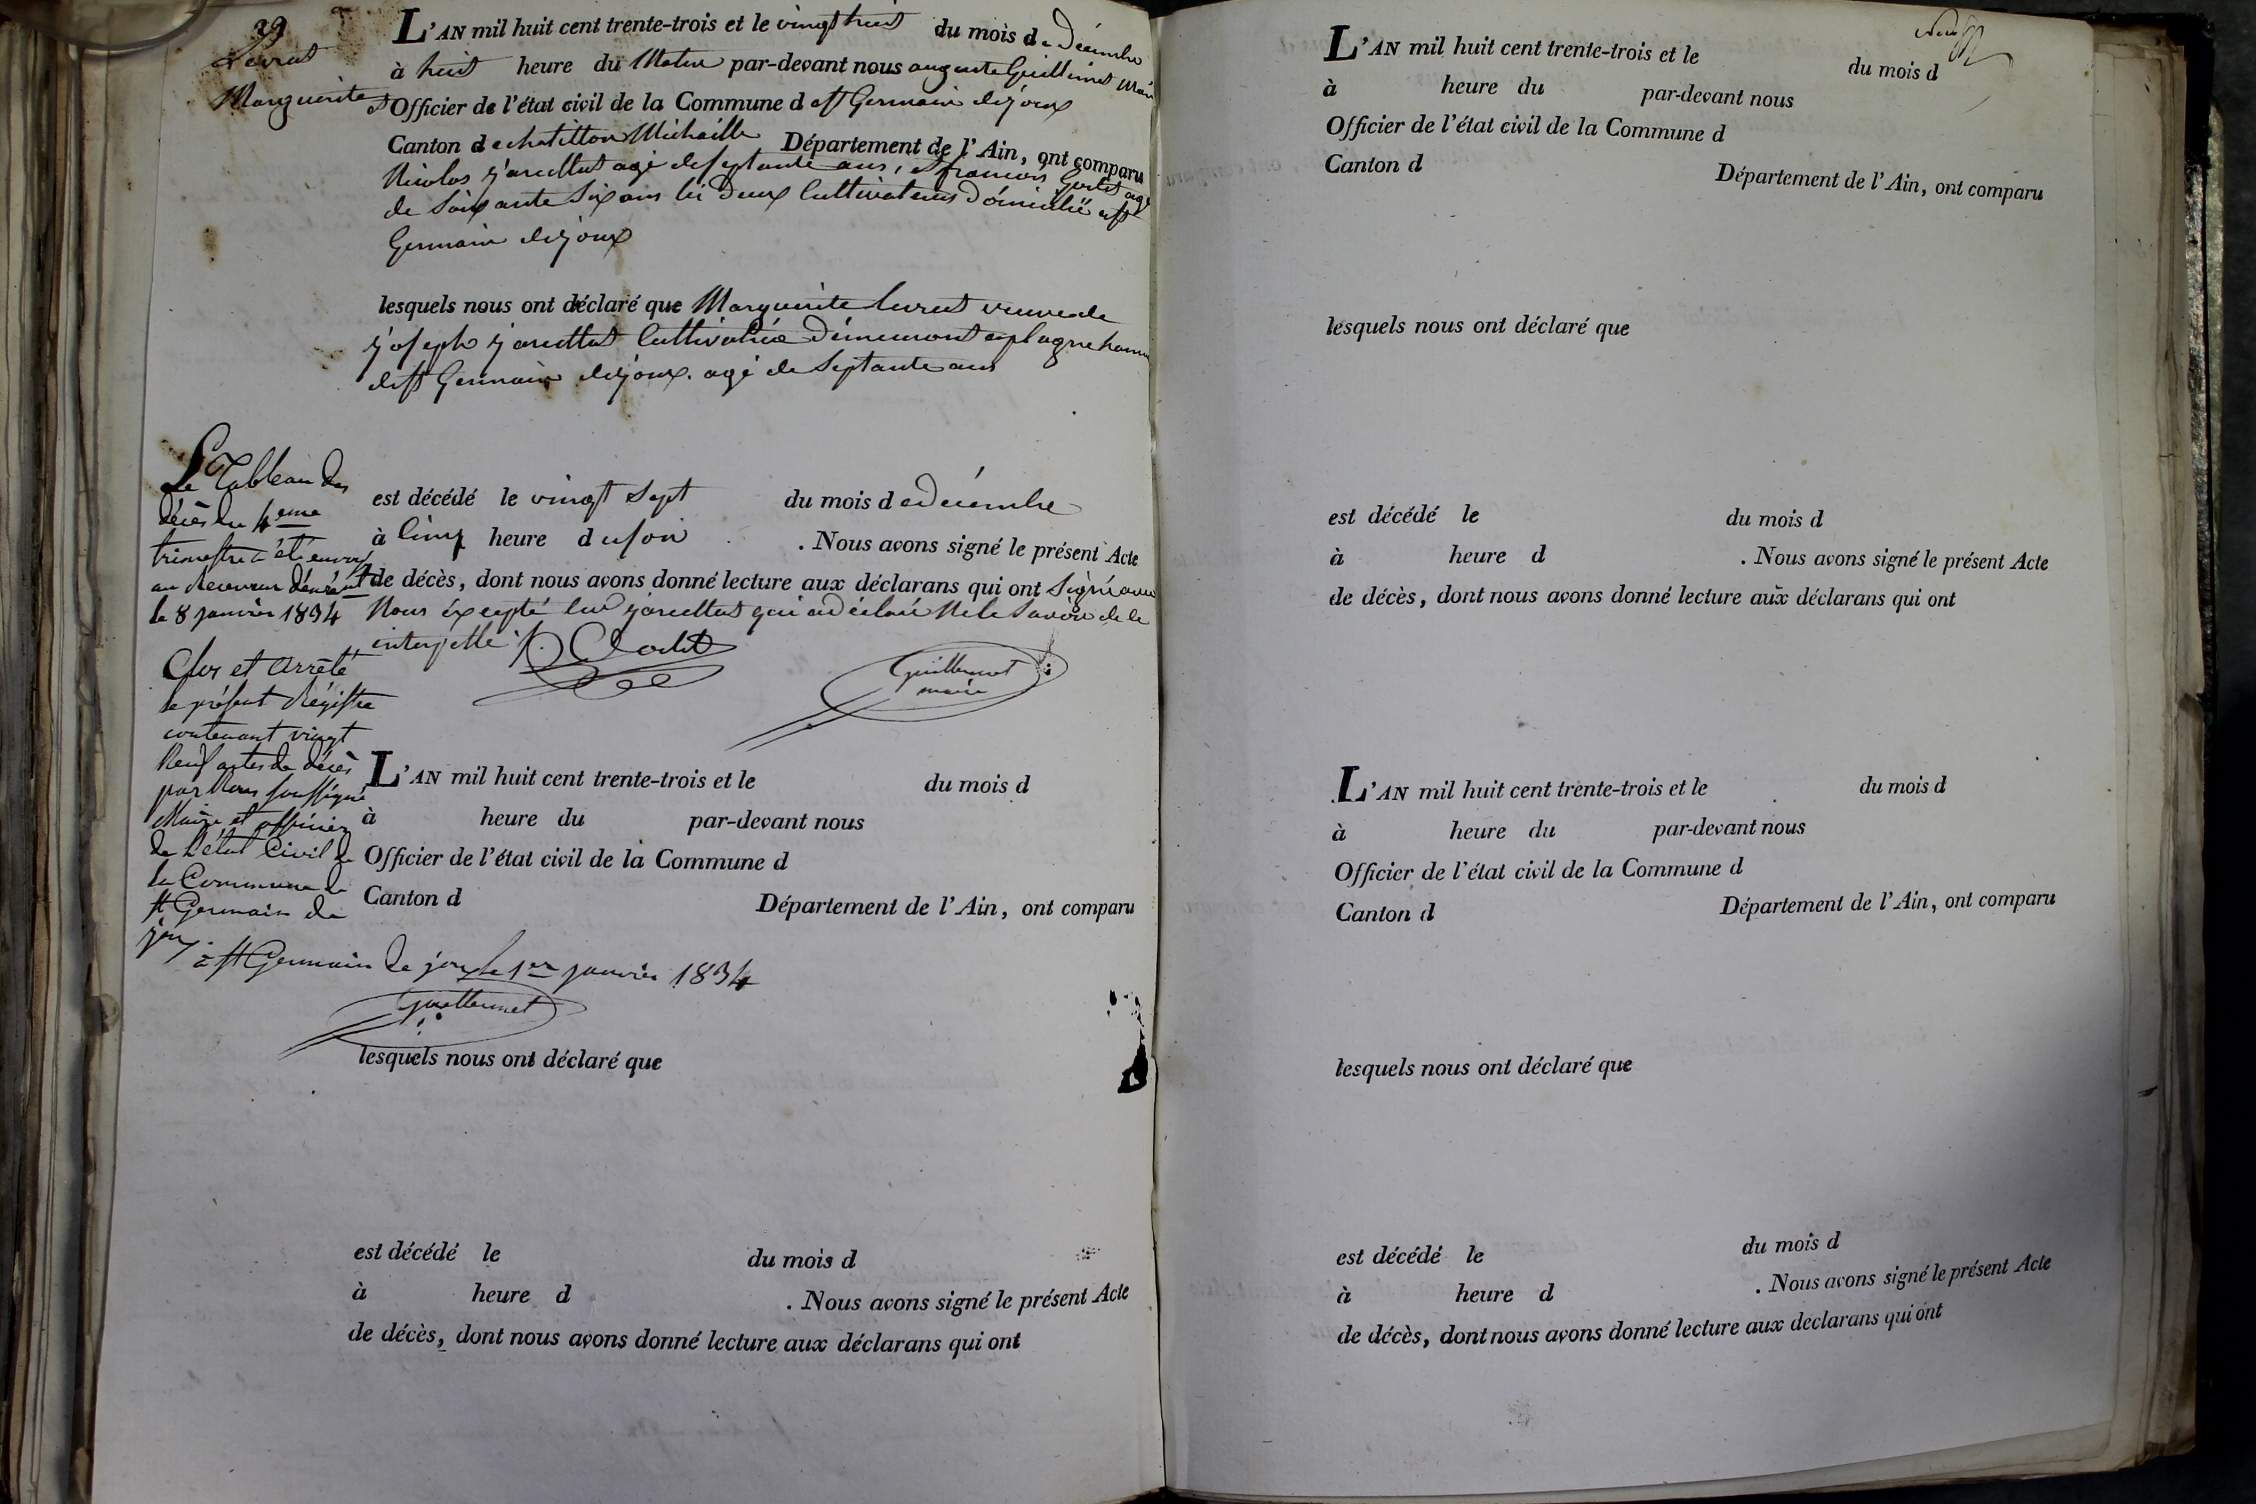 29
Levrat
Marguerite
L'AN mil huit cent trente-trois et le vingt huit du mois de Décembre
à huit heure du Matin par-devant nous auguste Guillermet Maire
et Officier de l'état civil de la Commune d e St Germain de joux
Canton d e chatillon Michaille Département de l'Ain, ont comparu
Nicolas jancellat agé de septante ans, et francois Godet agé
de soixante six ans les deux Cultivateurs domicilié a St
Germain de joux
lesquels nous ont déclaré que Marguerite Levrat veuve de
joseph jancellat Cultivatrice Demeurant a plagne hameau
de St Germain de joux. agé de septante ans
est décédé le vingt sept du mois d e décembre
à Cinq heure d u soir . Nous avons signé le présent Acte
de décès, dont nous avons donné lecture aux déclarans qui ont signé avec
Nous éxcepté led jancellat qui a déclaré Ne le savoir de ce
interpellé
Godet
Guillermet
maire
Le Tableau des
décès du 4eme
trimestre a été envoyé
au Receveur
le 8 janvier 1834
Clos et arrêté
le présent Régistre
contenant vingt
Neuf actes de décès
par Nous soussigné
Maire et officier
de l'état Civil de
la Commune de
St Germain de
joux.
à St Germain de joux le 1er janvier 1834
Guillermet
L'AN mil huit cent trente-trois et le du mois d
à heure du par-devant nous
Officier de l'état civil de la Commune d
Canton d Département de l'Ain, ont comparu
lesquels nous ont déclaré que
est décédé le du mois d
à heure d . Nous avons signé le présent Acte
de décès, dont nous avons donné lecture aux déclarans qui ont
L'AN mil huit cent trente-trois et le du mois d
à heure du par-devant nous
Officier de l'état civil de la Commune d
Canton d Département de l'Ain, ont comparu
lesquels nous ont déclaré que
est décédé le du mois d
à heure d . Nous avons signé le présent Acte
de décès, dont nous avons donné lecture aux déclarans qui ont
L'AN mil huit cent trente-trois et le du mois d
à heure du par-devant nous
Officier de l'état civil de la Commune d
Canton d Département de l'Ain, ont comparu
lesquels nous ont déclaré que
est décédé le du mois d
à heure d . Nous avons signé le présent Acte
de décès, dont nous avons donné lecture aux déclarans qui ont